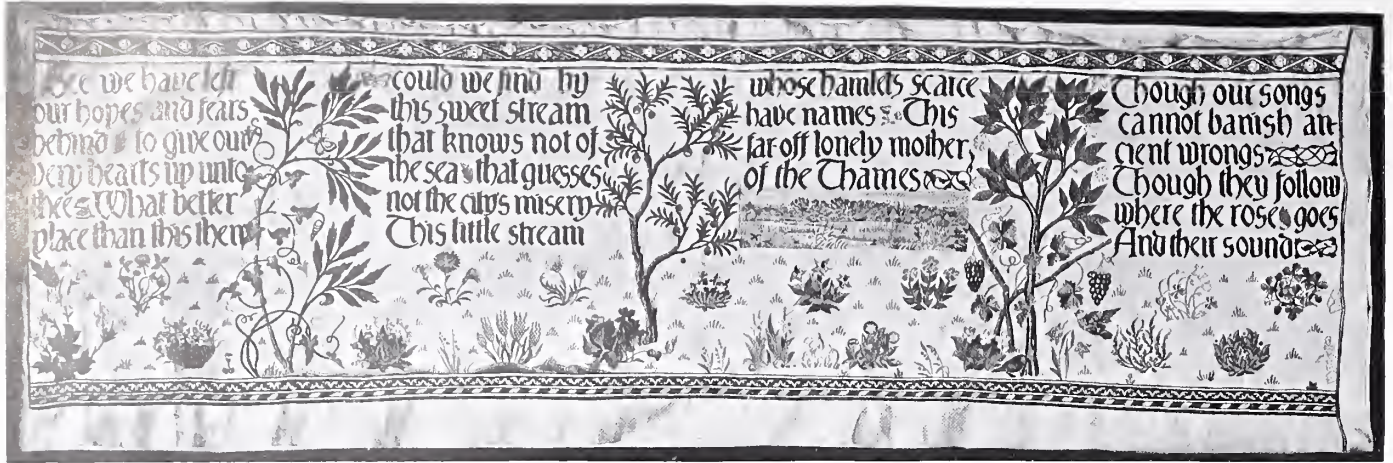 we have left
our hopes and fears
behind to give our
very hearts up unto
thee What better
place than this then
could we find by
this sweet stream
that knows not of
the sea that guesses
not the citys misery
This little stream
whose hamlets scarce
have names This
far off lonely mother
of the Thames
Though our songs
cannot banish an-
cient wrongs
Though they follow
where the rose goes
And their sound